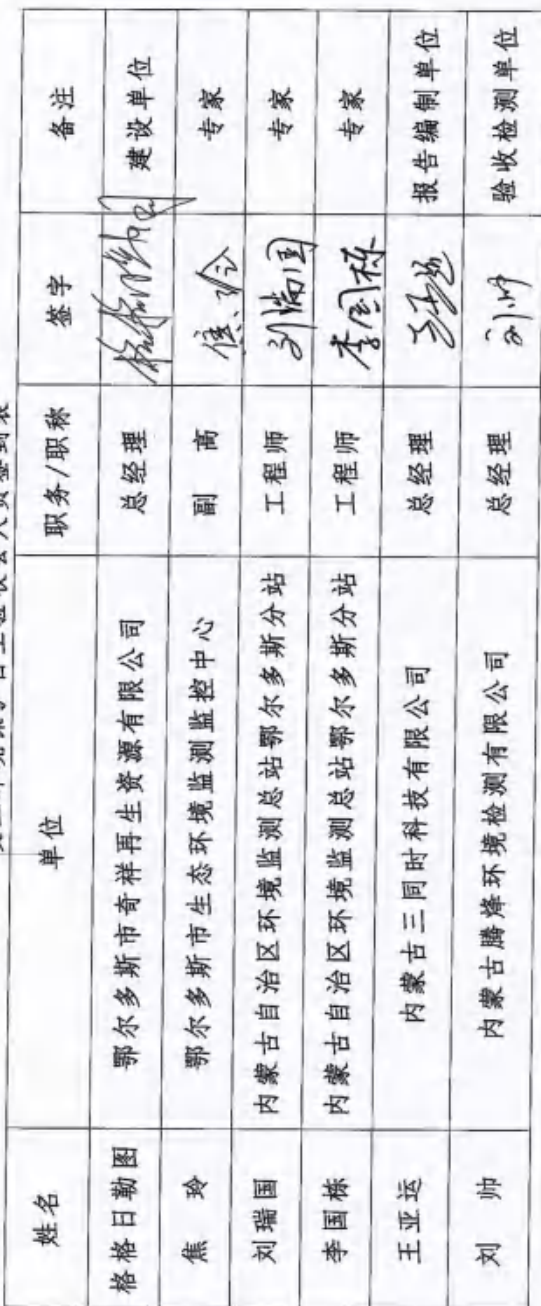 姓名 单位 职务/职称 签字 备注
格格日勒图 鄂尔多斯市奇祥再生资源有限公司 总经理 建设单位
焦 玲 鄂尔多斯市生态环境监测监控中心 副 高 焦玲 专家
刘瑞国 内蒙古自治区环境监测总站鄂尔多斯分站 工程师 刘瑞国 专家
李国栋 内蒙古自治区环境监测总站鄂尔多斯分站 工程师 李国栋 专家
王亚运 内蒙古三同时科技有限公司 总经理 王亚运 报告编制单位
刘 帅 内蒙古腾烽环境检测有限公司 总经理 刘帅 验收检测单位